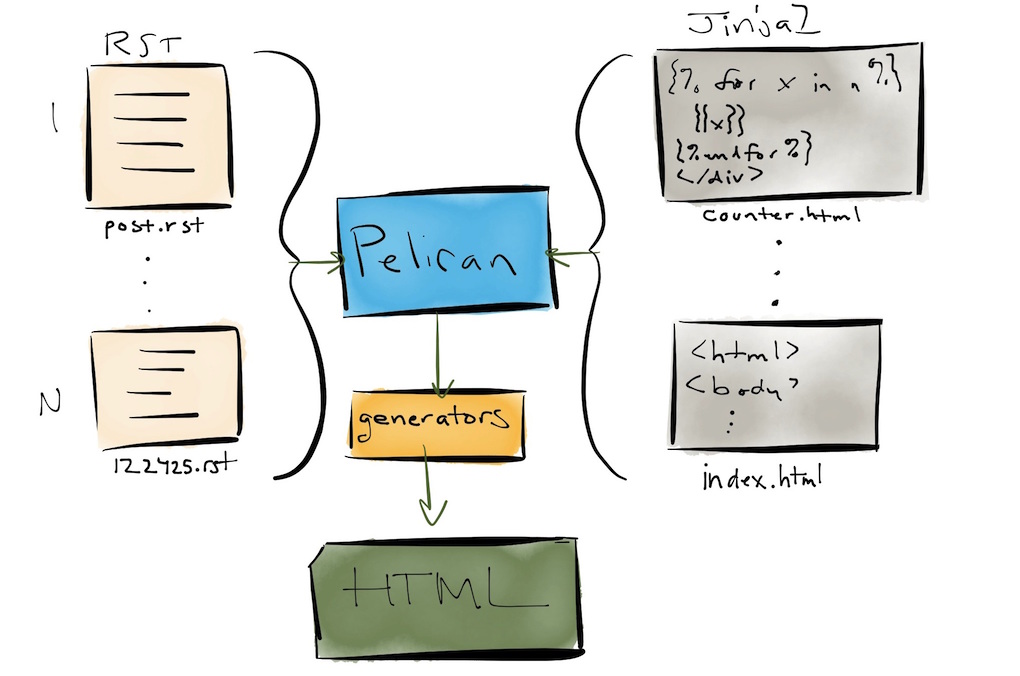 RST
1
post.rst
N
122425.rst
Pelican
generators
HTML
Jinja2
{% for x in n %}
{{x}}
{% endfor %}
</div>
counter.html
<html>
<body>
index.html